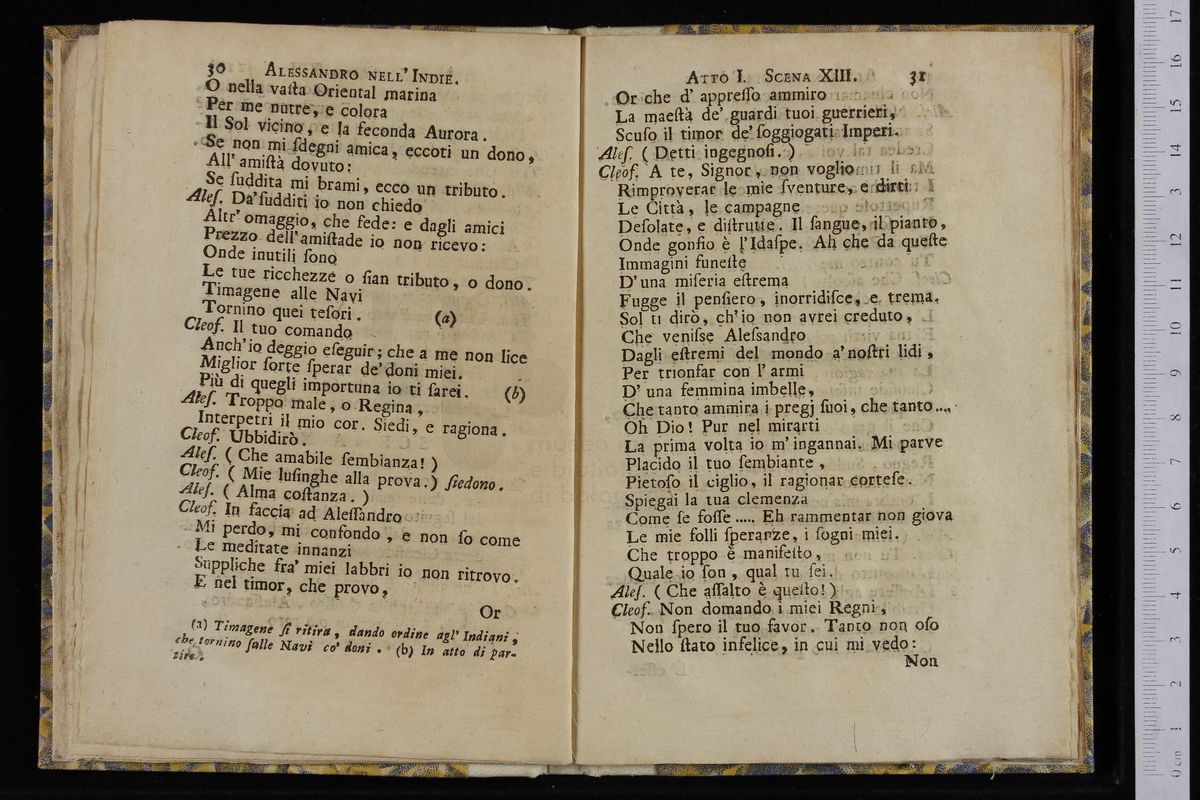 30 ALESSANDRO NELL' INDIE.
O nella vaſta Oriental marina
Per me nutre, e colora
Il Sol vicino, e la feconda Aurora.
Se non mi ſdegni amica, eccoti un dono,
All' amiſtà dovuto:
Se ſuddita mi brami, ecco un tributo.
Aleſ. Da' ſudditi io non chiedo
Altr' omaggio, che fede: e dagli amici
Prezzo dell' amiſtade io non ricevo:
Onde inutili ſono
Le tue ricchezze o ſian tributo, o dono.
Timagene alle Navi
Tornino quei teſori. (a)
Cleof. Il tuo comando
Anch' io deggio eſeguir; che a me non lice
Miglior ſorte ſperar de' doni miei.
Più di quegli importuna io ti ſarei. (b)
Aleſ. Troppo male, o Regina,
Interpetri il mio cor. Siedi, e ragiona.
Cleof. Ubbidirò.
Aleſ. ( Che amabile ſembianza! )
Cleof. ( Mie luſinghe alla prova. ) ſiedono.
Aleſ. ( Alma coſtanza. )
Cleof. In faccia ad Aleſſandro
Mi perdo, mi confondo, e non ſo come
Le meditate innanzi
Suppliche fra' miei labbri io non ritrovo.
E nel timor, che provo,
Or
(a) Timagene ſi ritira, dando ordine agl' Indiani,
che tornino ſulle Navi co' doni. (b) In atto di par-
tire.
ATTO I. SCENA XIII. 31
Or che d' appreſſo ammiro
La maeſtà de' guardi tuoi guerrieri,
Scuſo il timor de' ſoggiogati Imperi.
Aleſ. ( Detti ingegnoſi. )
Cleof. A te, Signor, non voglio
Rimproverar le mie ſventure, e dirti
Le Città, le campagne
Deſolate, e diſtrutte. Il ſangue, il pianto,
Onde gonfio è l'Idaſpe. Ah che da queſte
Immagini funeſte
D' una miſeria eſtrema
Fugge il penſiero, inorridiſce, e trema.
Sol ti dirò, ch' io non avrei creduto,
Che veniſse Aleſsandro
Dagli eſtremi del mondo a' noſtri lidi,
Per trionfar con l' armi
D' una femmina imbelle,
Che tanto ammira i pregj ſuoi, che tanto....
Oh Dio! Pur nel mirarti
La prima volta io m' ingannai. Mi parve
Placido il tuo ſembiante,
Pietoſo il ciglio, il ragionar corteſe.
Spiegai la tua clemenza
Come ſe foſſe ..... Eh rammentar non giova
Le mie folli ſperanze, i ſogni miei.
Che troppo è manifeſto,
Quale io ſon, qual tu ſei.
Aleſ. ( Che aſſalto è queſto! )
Cleof. Non domando i miei Regni,
Non ſpero il tuo favor. Tanto non oſo
Nello ſtato infelice, in cui mi vedo:
Non